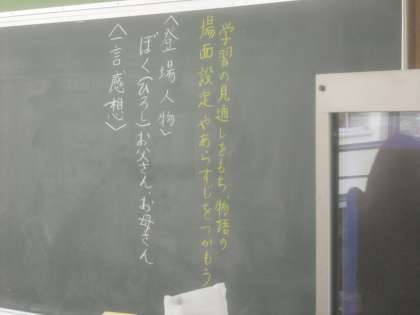 学習の見通しをもち、物語の
場面設定やあらすじをつかもう
〈登場人物〉
ぼく(ひろし)お父さん、お母さん
〈一言感想〉